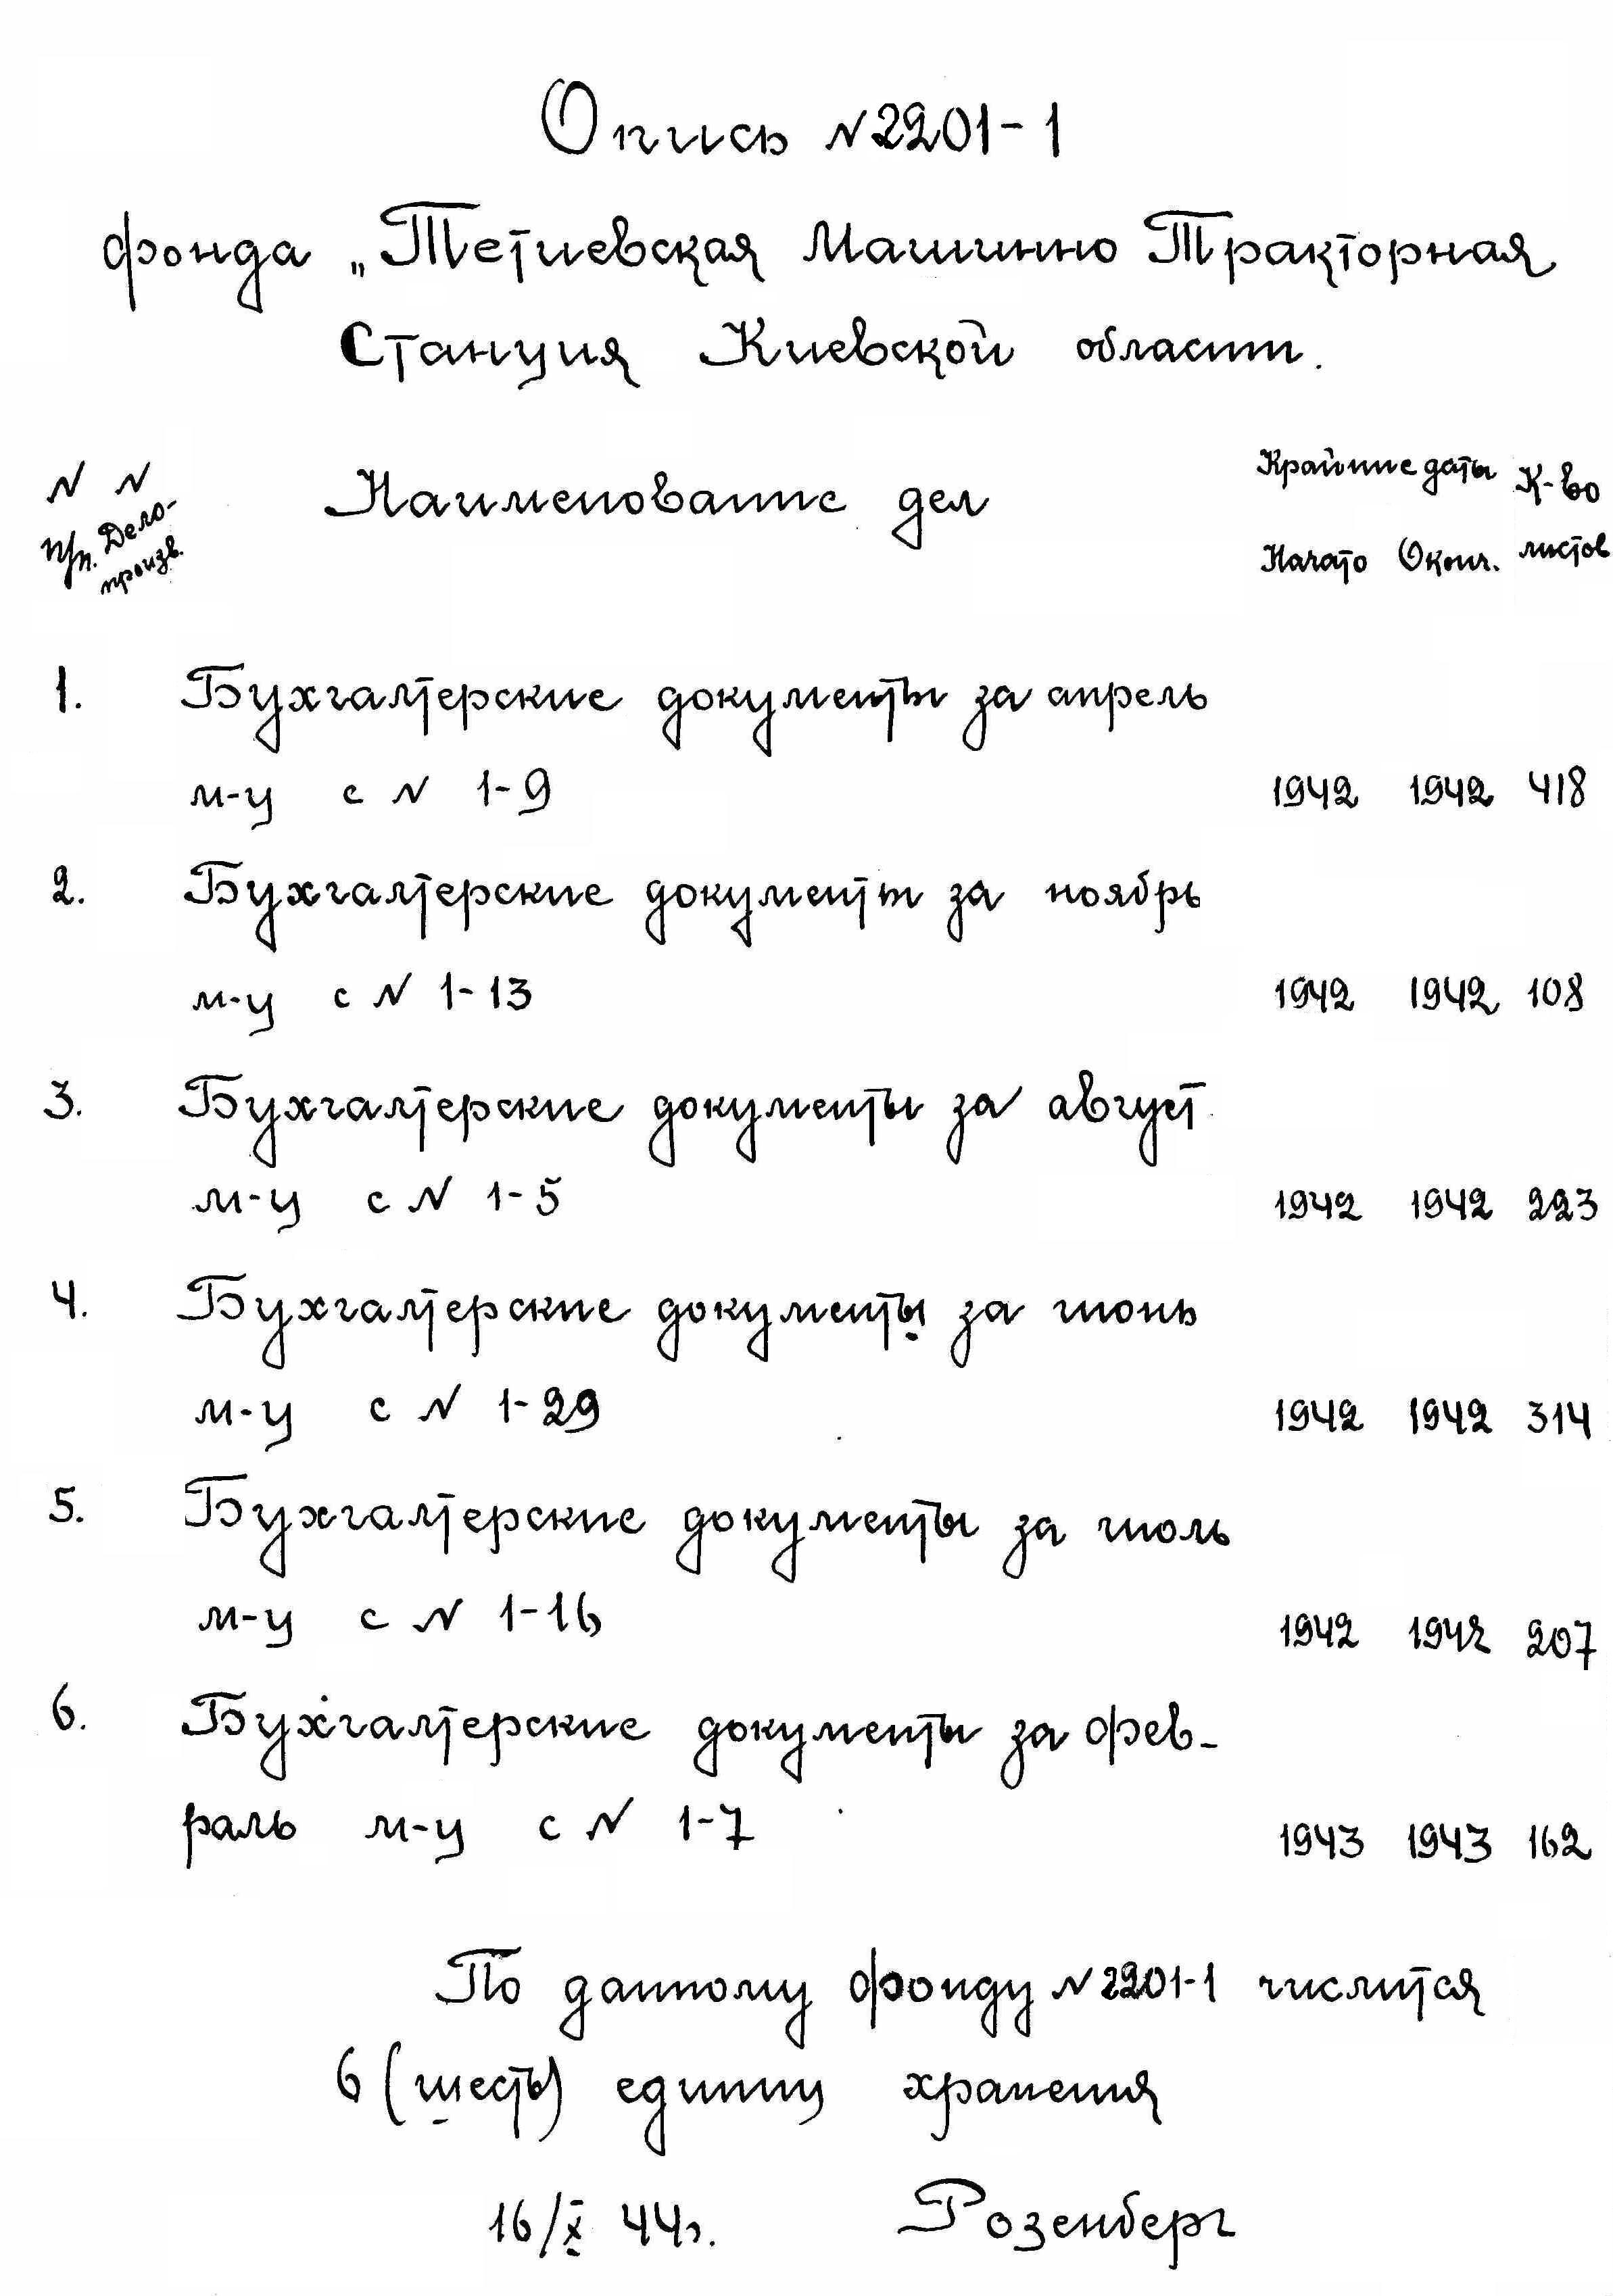 Опись №2201-1
фонда „Тетиевская Машинно Тракторная
Станция Киевской области.
№ № Наименование дел Крайние даты К-во
п/п. Дело-
произв. Начато Оконч. листов
1. Бухгалтерские документы за апрель
м-ц с № 1-9 1942 1942 418
2. Бухгалтерские документы за ноябрь
м-ц с № 1-13 1942 1942 108
3. Бухгалтерские документы за август
м-ц с № 1-5 1942 1942 223
4. Бухгалтерские документы за июнь
м-ц с № 1-29 1942 1942 314
5. Бухгалтерские документы за июль
м-ц с № 1-16 1942 1942 207
6. Бухгалтерские документы за фев-
раль м-ц с № 1-7 1943 1943 162
По данному фонду №2201-1 числится
6 (шесть) единиц хранения
16/X 44г. Розенберг